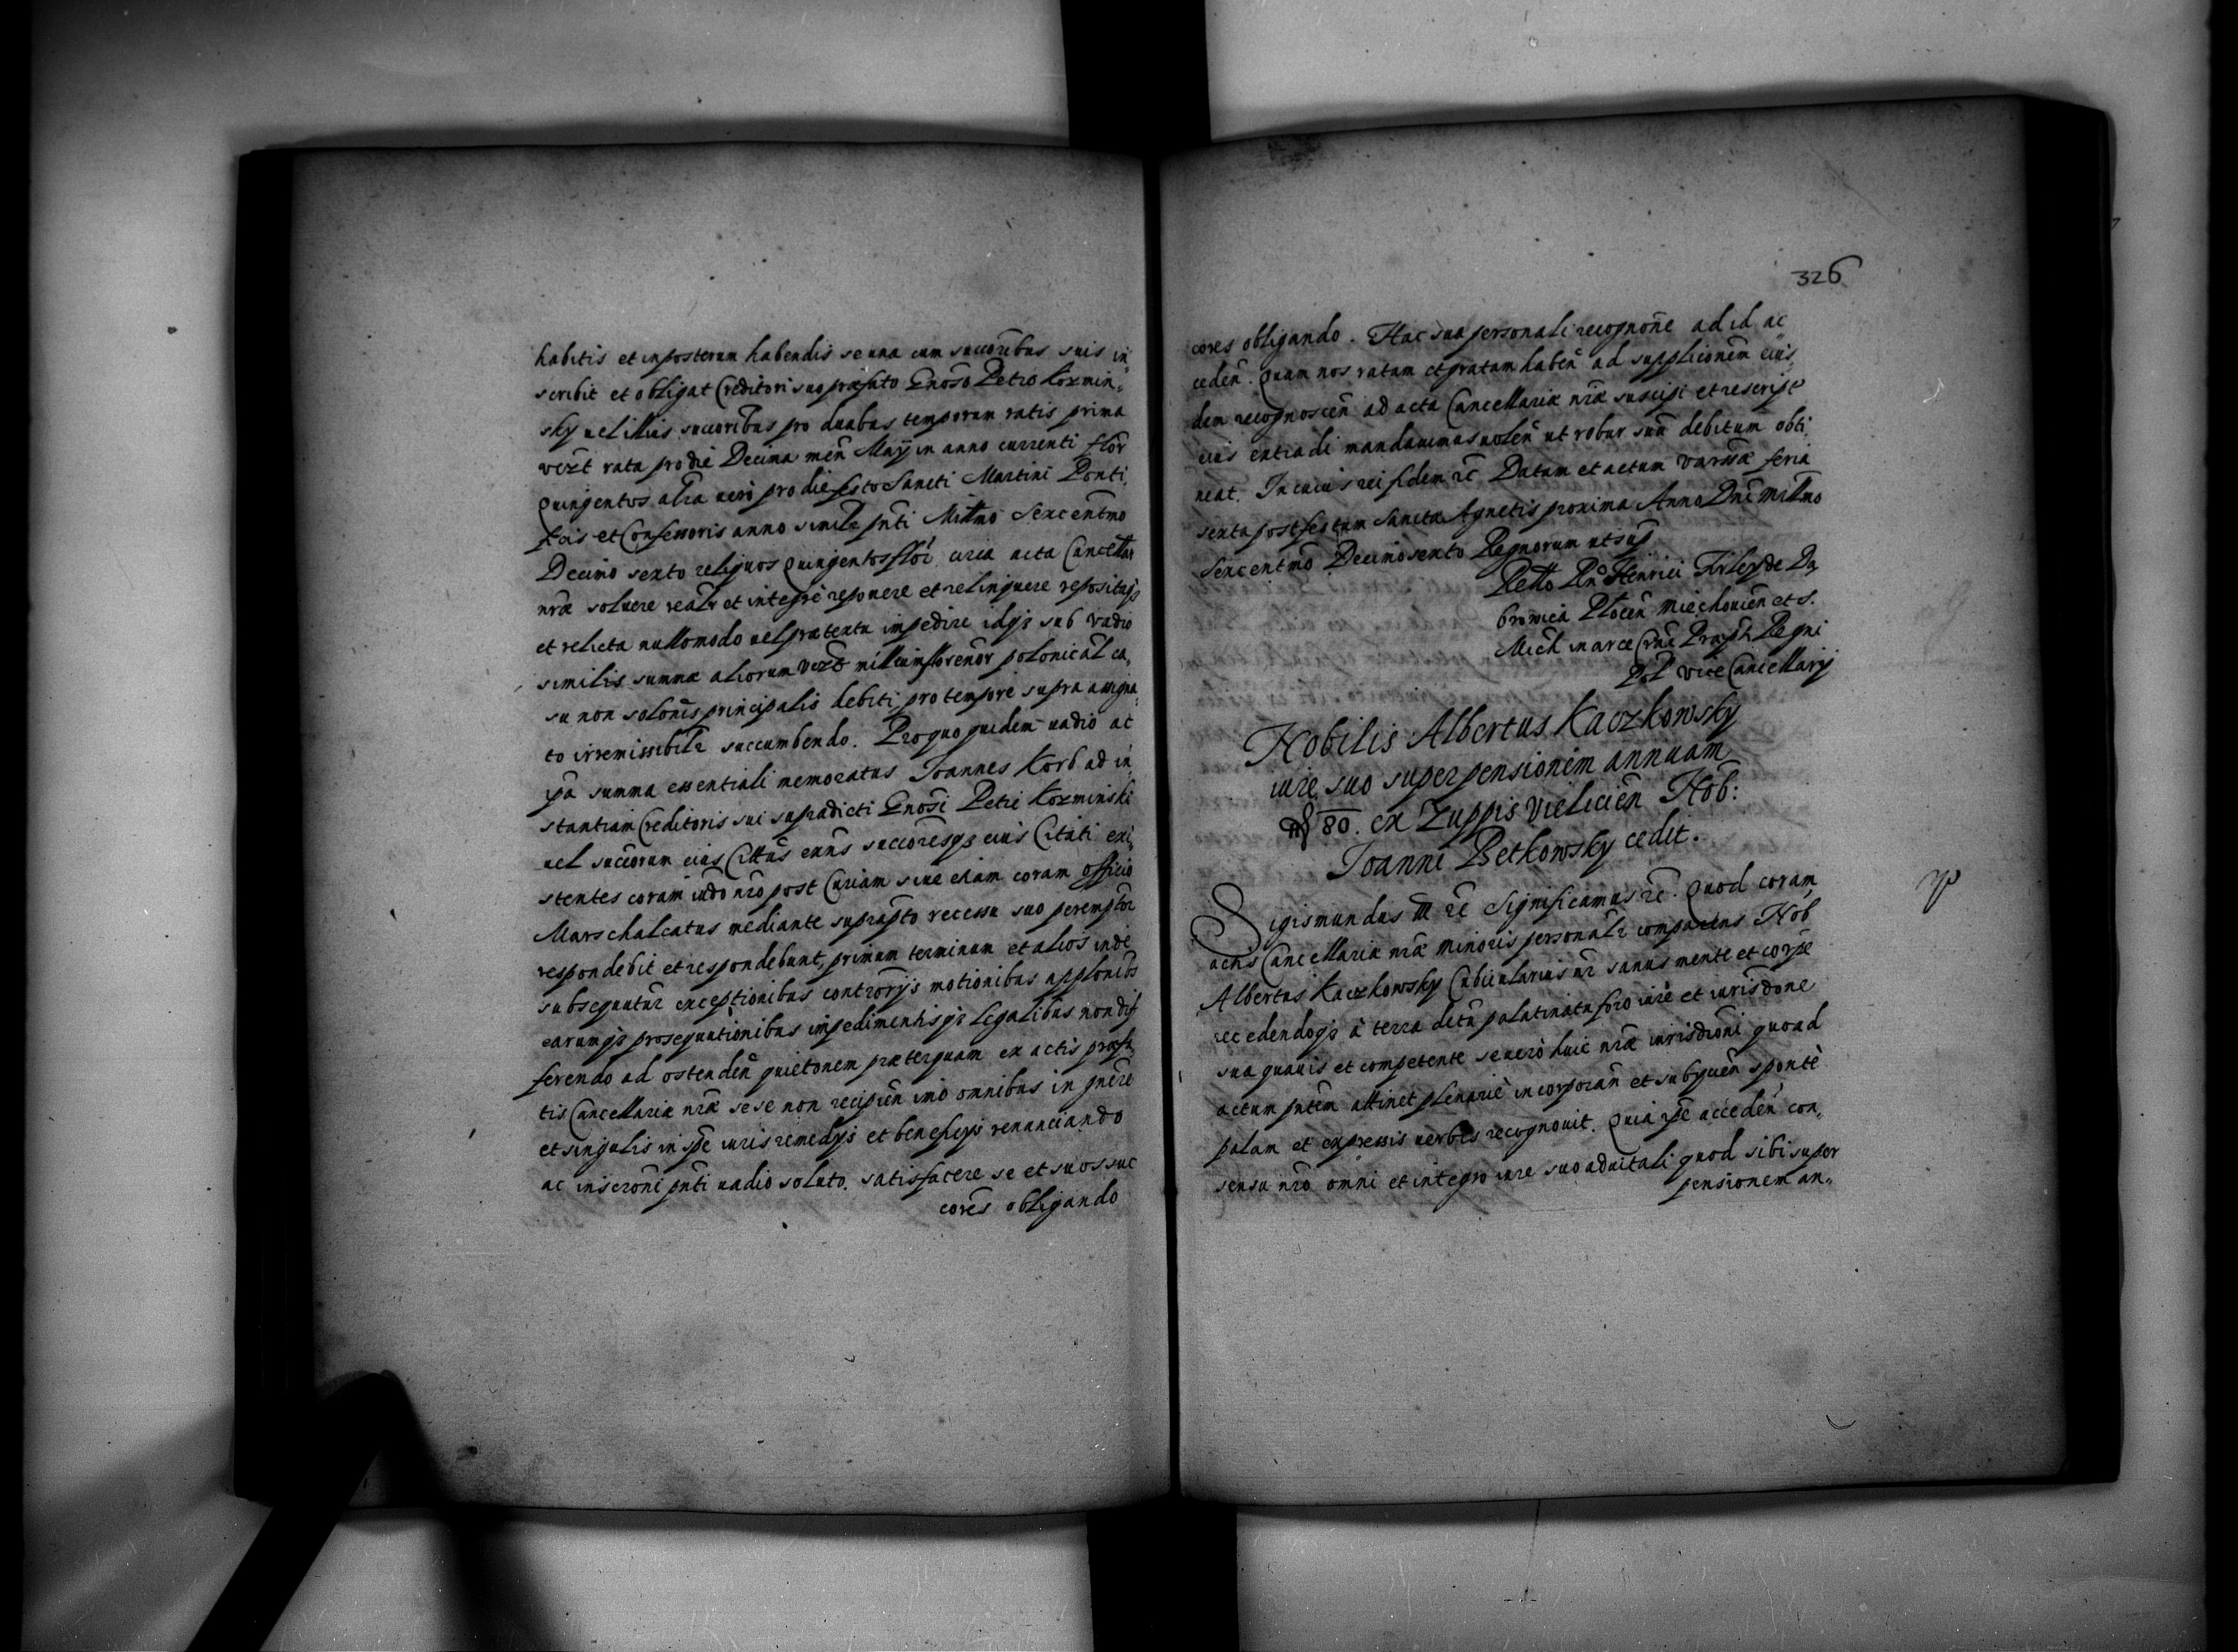 habitis et inposterum habendis se una cum succoribus suis in
scribit et obligat Creditori suo præfato Gnoso Petro Kozmin„
sky uel illius succoribus pro duabus temporum ratis prima
vizt rata pro die Decima men Maÿ in anno currenti flor
quingentos altra uero pro die festo Sancti Martini Ponti„
ficis et Confessoris anno simile pnti Millmo Sexcentmo
Decimo sexto reliquos quingentos flor circa acta Cancellar
nræ soluere realr et integre reponere et relinquere repositasqꝫ
et relicta nullomodo uel prætextu impedire idqꝫ sub vadio
similis summæ aliorum vizt mille florenor polonical ca„
su non solonis principalis debiti pro tempore supra assigna„
to irremissibilr succumbendo. Pro quo quidem uadio ac
ipa summa essentiali memoratus Joannes Korb ad in„
stantiam Creditoris sui supradicti Gnosi Petri Kozminski
uel succorum eius Cittus exns succoresqꝫ eius Citati exi„
stentes coram iudo nro post Curiam siue etiam coram officio
Marschalcatus mediante suprapto recessu suo peremptor
respondebit et respondebunt, primum terminum et alios inde
subsequutur exceptionibus controrÿs motionibus applonibs
earumqꝫ prosequutionibus impedimentisqꝫ legalibus non dif
ferendo ad ostenden quietonem præterquam ex actis præfa„
tis Cancellariæ nræ sese non recipien imo omnibus in gnere
et singulis in spe iuris remedÿs et beneficÿs renunciando
ac inscroni pnti uadio soluto. satisfacere se et suos suc
cores obligando
326
cores obligando. Hac sua personali recognone ad id ac
ceden. Quam nos ratam et gratam haben ad supplicionem eius„
dem recognoscen ad acta Cancellariæ nræ suscipi et rescript
eius extradi mandauimus uolen ut robur suu debitum obti„
neat. In cuius rei fidem rc Datum et actum Varsaæ feria
sexta post festum Sanctæ Agnetis proxima Anno Dni Millmo
Sexcentmo Decimo sexto Regnorum ut sup
Relto Rn Henrici Firley de Dą„
browica Plocen Miechouien et S.
Mich in arce Crac Præpti Regni
Pol vice Cancellarÿ
Nobilis Albertus Kaczkowsky
iure suo super pensionem annuam
80. ex Zuppis Vielicien Nob:
Joanni Petkowsky cedit.
Sigismundus III rc Significamus rc. Quod coram
actis Cancellariæ nræ Minoris personalr comparens Nob
Albertus Kaczkowsky Cubicularius nr sanus mente et corpe
recedendoqꝫ à terra distu palatinatu foro iure et iurisdone
sua quauis et competente se uerò huic nræ iurisdioni quoad
actum pntem attinet plenariè incorporan et subÿcien spontè
palam et expressis uerbis recognouit. Quia ipe acceden con„
sensu nro omni et integro iure suo aduitali quod sibi super
pensionem an„